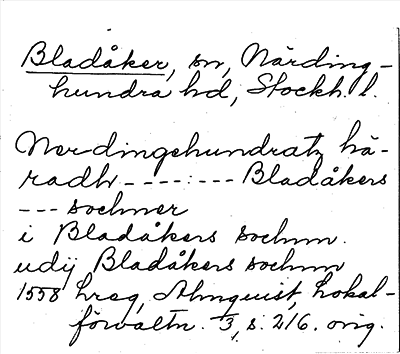 Bladåker, sn, Närding-
hundra hd, Stockh. l.
Nerdingehundratz hä-
radh - - - - : - - - Bladåkers
- - - sochner
i Bladåkers sochnn.
udij Bladåkers sochnn
1558 hreg, Almquist, Lokal-
förvaltn. 3, s. 216. orig.